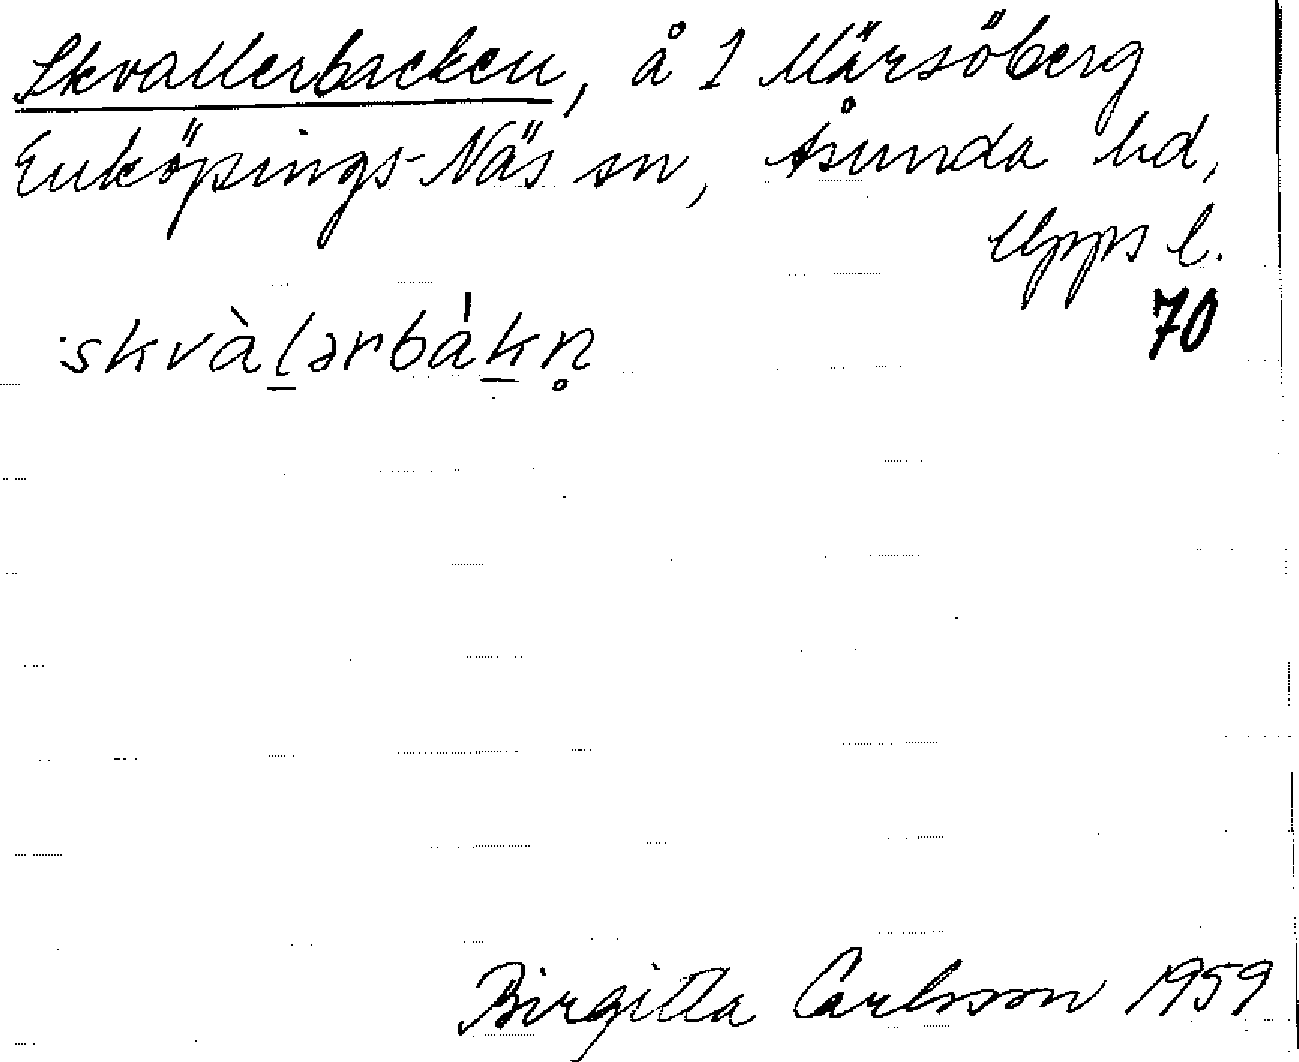 Skvallerbacken, å 1 Märsöberg
Enköpings-Näs sn, Åsunda hd,
Upps l.
70
skvàl̲ərbák̲n̥
Birgitta Carlsson 1959